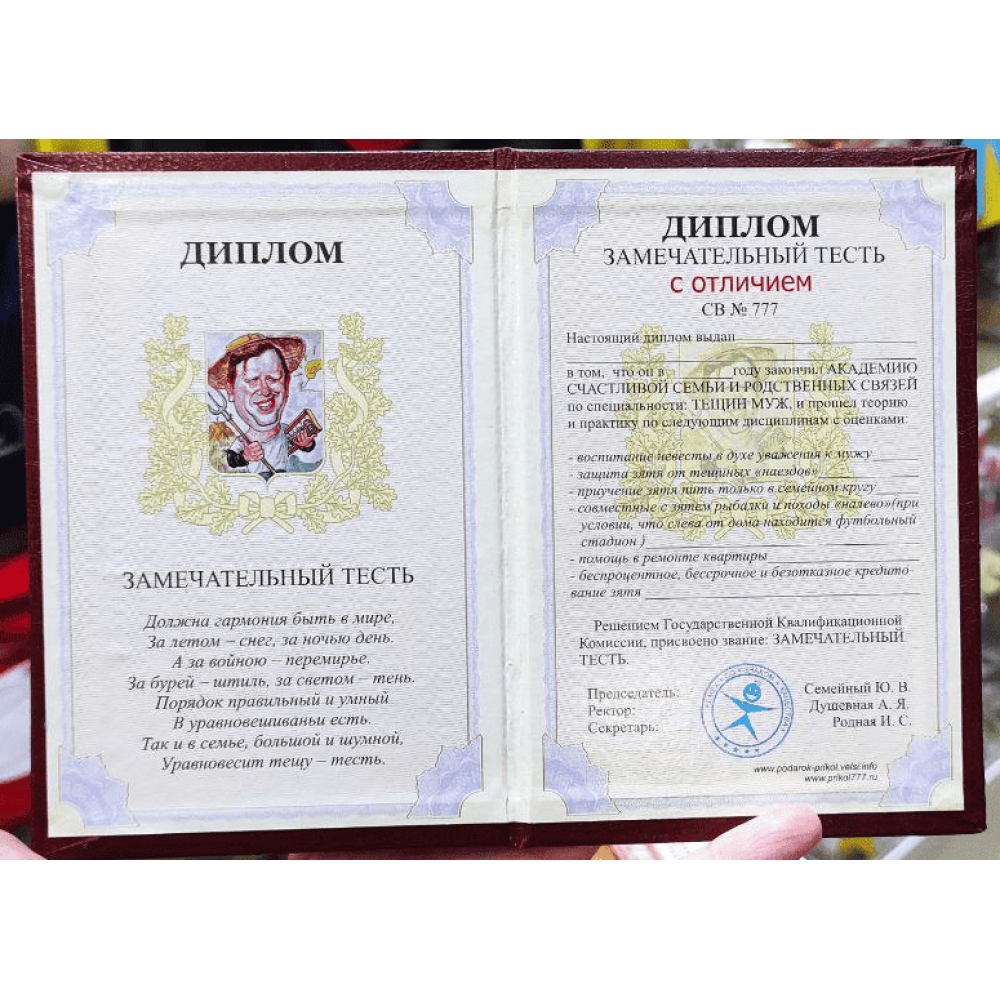 ДИПЛОМ
ЗАМЕЧАТЕЛЬНЫЙ ТЕСТЬ
Должна гармония быть в мире,
За летом – снег, за ночью день.
А за войною – перемирье.
За бурей – штиль, за светом – тень.
Порядок правильный и умный
В уравновешиваньи есть.
Так и в семье, большой и шумной,
Уравновесит тещу – тесть.
ДИПЛОМ
ЗАМЕЧАТЕЛЬНЫЙ ТЕСТЬ
с отличием
СВ № 777
Настоящий диплом выдан
в том, что он в ________ году закончил АКАДЕМИЮ
СЧАСТЛИВОЙ СЕМЬИ И РОДСТВЕННЫХ СВЯЗЕЙ
по специальности: ТЕЩИН МУЖ, и прошел теорию
и практику по следующим дисциплинам с оценками:
- воспитание невесты в духе уважения к мужу
- защита зятя от тещиных «наездов»
- приучение зятя пить только в семейном кругу
- совместные с зятем рыбалки и походы «налево»(при
условии, что слева от дома находится футбольный
стадион )
- помощь в ремонте квартиры
- беспроцентное, бессрочное и безотказное кредито-
вание зятя
Решением Государственной Квалификационной
Комиссии, присвоено звание: ЗАМЕЧАТЕЛЬНЫЙ
ТЕСТЬ.
Председатель: Семейный Ю. В.
Ректор: Душевная А. Я.
Секретарь: Родная И. С.
www.podarok-prikol.velsi.info
www.prikol777.ru